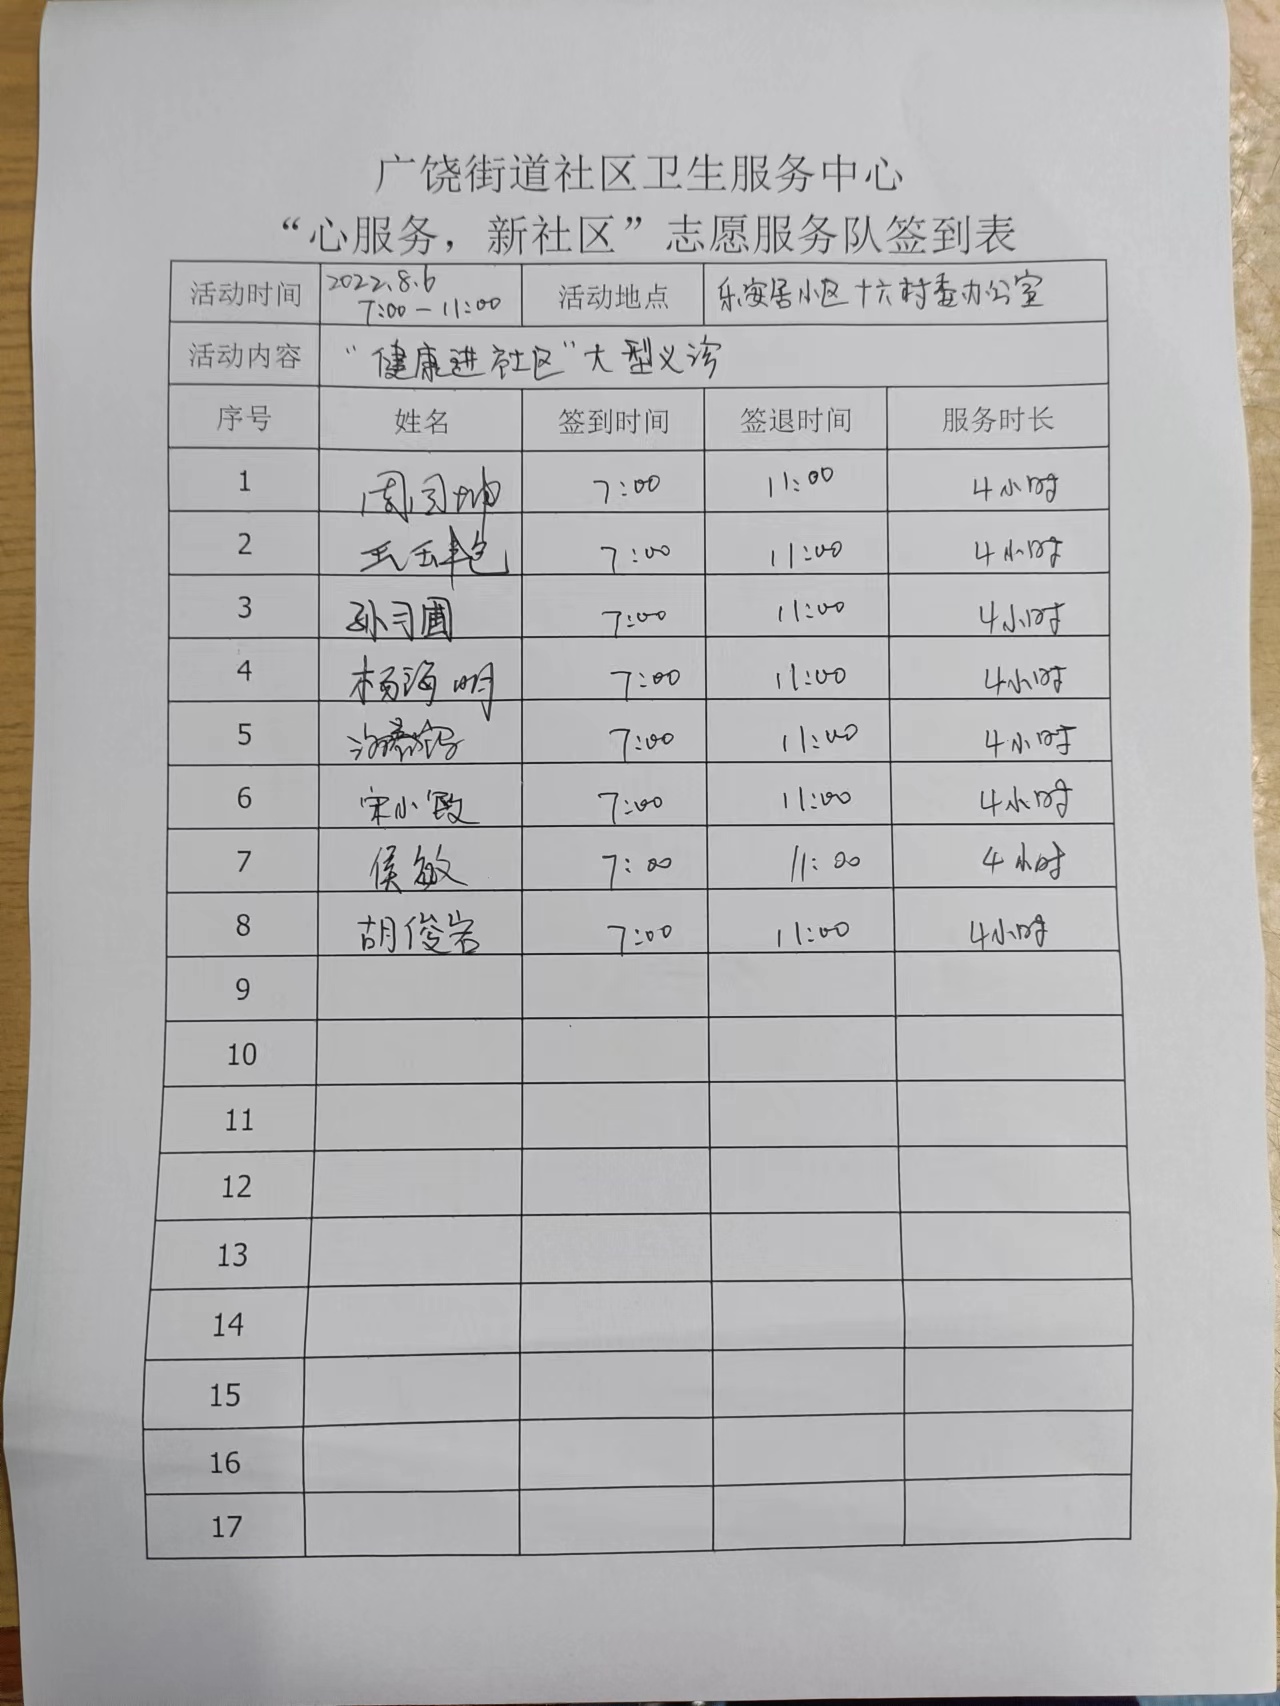 广饶街道社区卫生服务中心
“心服务，新社区”志愿服务队签到表
活动时间 2022.8.6 7:00-11:00 活动地点 乐安居小区十六村委办公室
活动内容 “健康进社区”大型义诊
序号 姓名 签到时间 签退时间 服务时长
1 周 坤 7:00 11:00 4小时
2 7:00 11:00 4小时
3 孙 7:00 11:00 4小时
4 杨海明 7:00 11:00 4小时
5 7:00 11:00 4小时
6 宋小 7:00 11:00 4小时
7 侯敏 7:00 11:00 4小时
8 胡俊岩 7:00 11:00 4小时
9
10
11
12
13
14
15
16
17